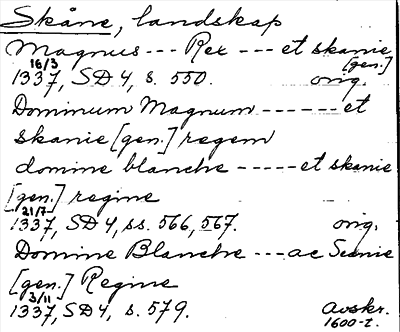 Skåne, landskap
Magnus --- Rex --- et skanie
[gen.]
16/3
1337, SD 4, s. 550. orig.
Dominum Magnum ------ et
skanie [gen.] regem
domine blanche ----- et skanie
[gen.] regine
21/7
1337, SD 4, ss. 566, 567. orig.
Domine Blanche --- ac Scanie
[gen.] Regine
3/11
1337, SD 4, s. 579. Avskr.
1600-t.